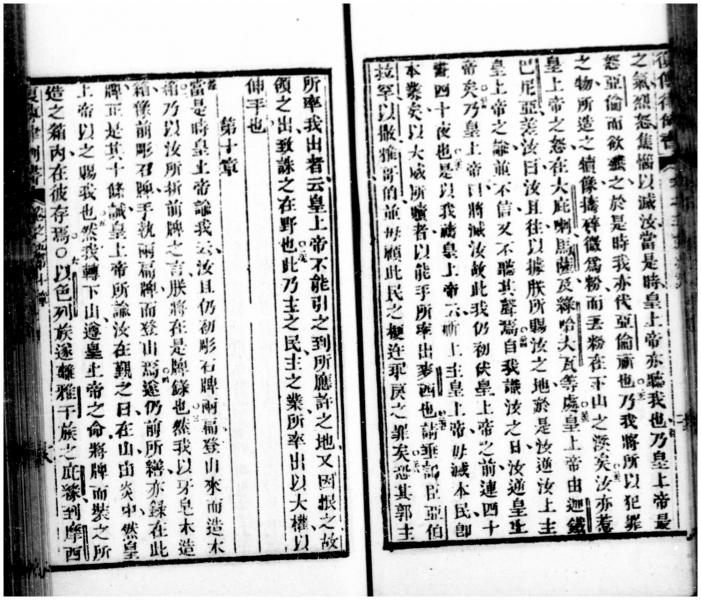 之氣怒怒集惱以滅汝當是時皇上帝亦聽我也乃皇上帝最
怒亞倫而欲滅之於是時我亦代亞倫祈也乃我將所以犯罪
之物所造之犢像擣碎微為粉而丟粉在下山之溪矣汝亦惹
皇上帝之怒在大庇喇馬薩及綠哈大瓦等處皇上帝由迦鐵
巴尼亞差汝曰汝且往以據朕所賜汝之地於是汝逆汝上主
皇上帝之諭並不信又不聽其聲焉自我識汝之日汝逆皇上
帝矣乃皇上曰將滅汝故此我仍初伏皇上帝之前連四十
晝四十夜也是以我禱皇上帝云祈上主皇上帝毋滅本民即
本業矣以大威所贖者以能手所率出麥西也請垂記臣亞伯
拉罕以撒雅哥的並毋顧此民之梗迕邪戾之罪矣恐其郭主
所率我出者云皇上帝不能引之到所應許之地又因恨之故
領之出致誅之在野也此乃主之民主之業所率出以大權以
伸手也
第十章
當是時皇上帝諭我云汝且仍初彫石牌兩扁登山來而造木
箱乃以汝所折前牌之言朕將在是牌錄也然我以牙皂木造
箱像前彫石牌手執兩扁牌而登山焉遂仍前所繕亦錄在此
牌正是其十條誡皇上帝所諭汝在覲之日在山由炎中然皇
上帝以之賜我也然我轉下山遵皇上帝之命將牌而裝之所
造之箱內在彼存焉○以色列族遂離雅干族之庇綠到摩西